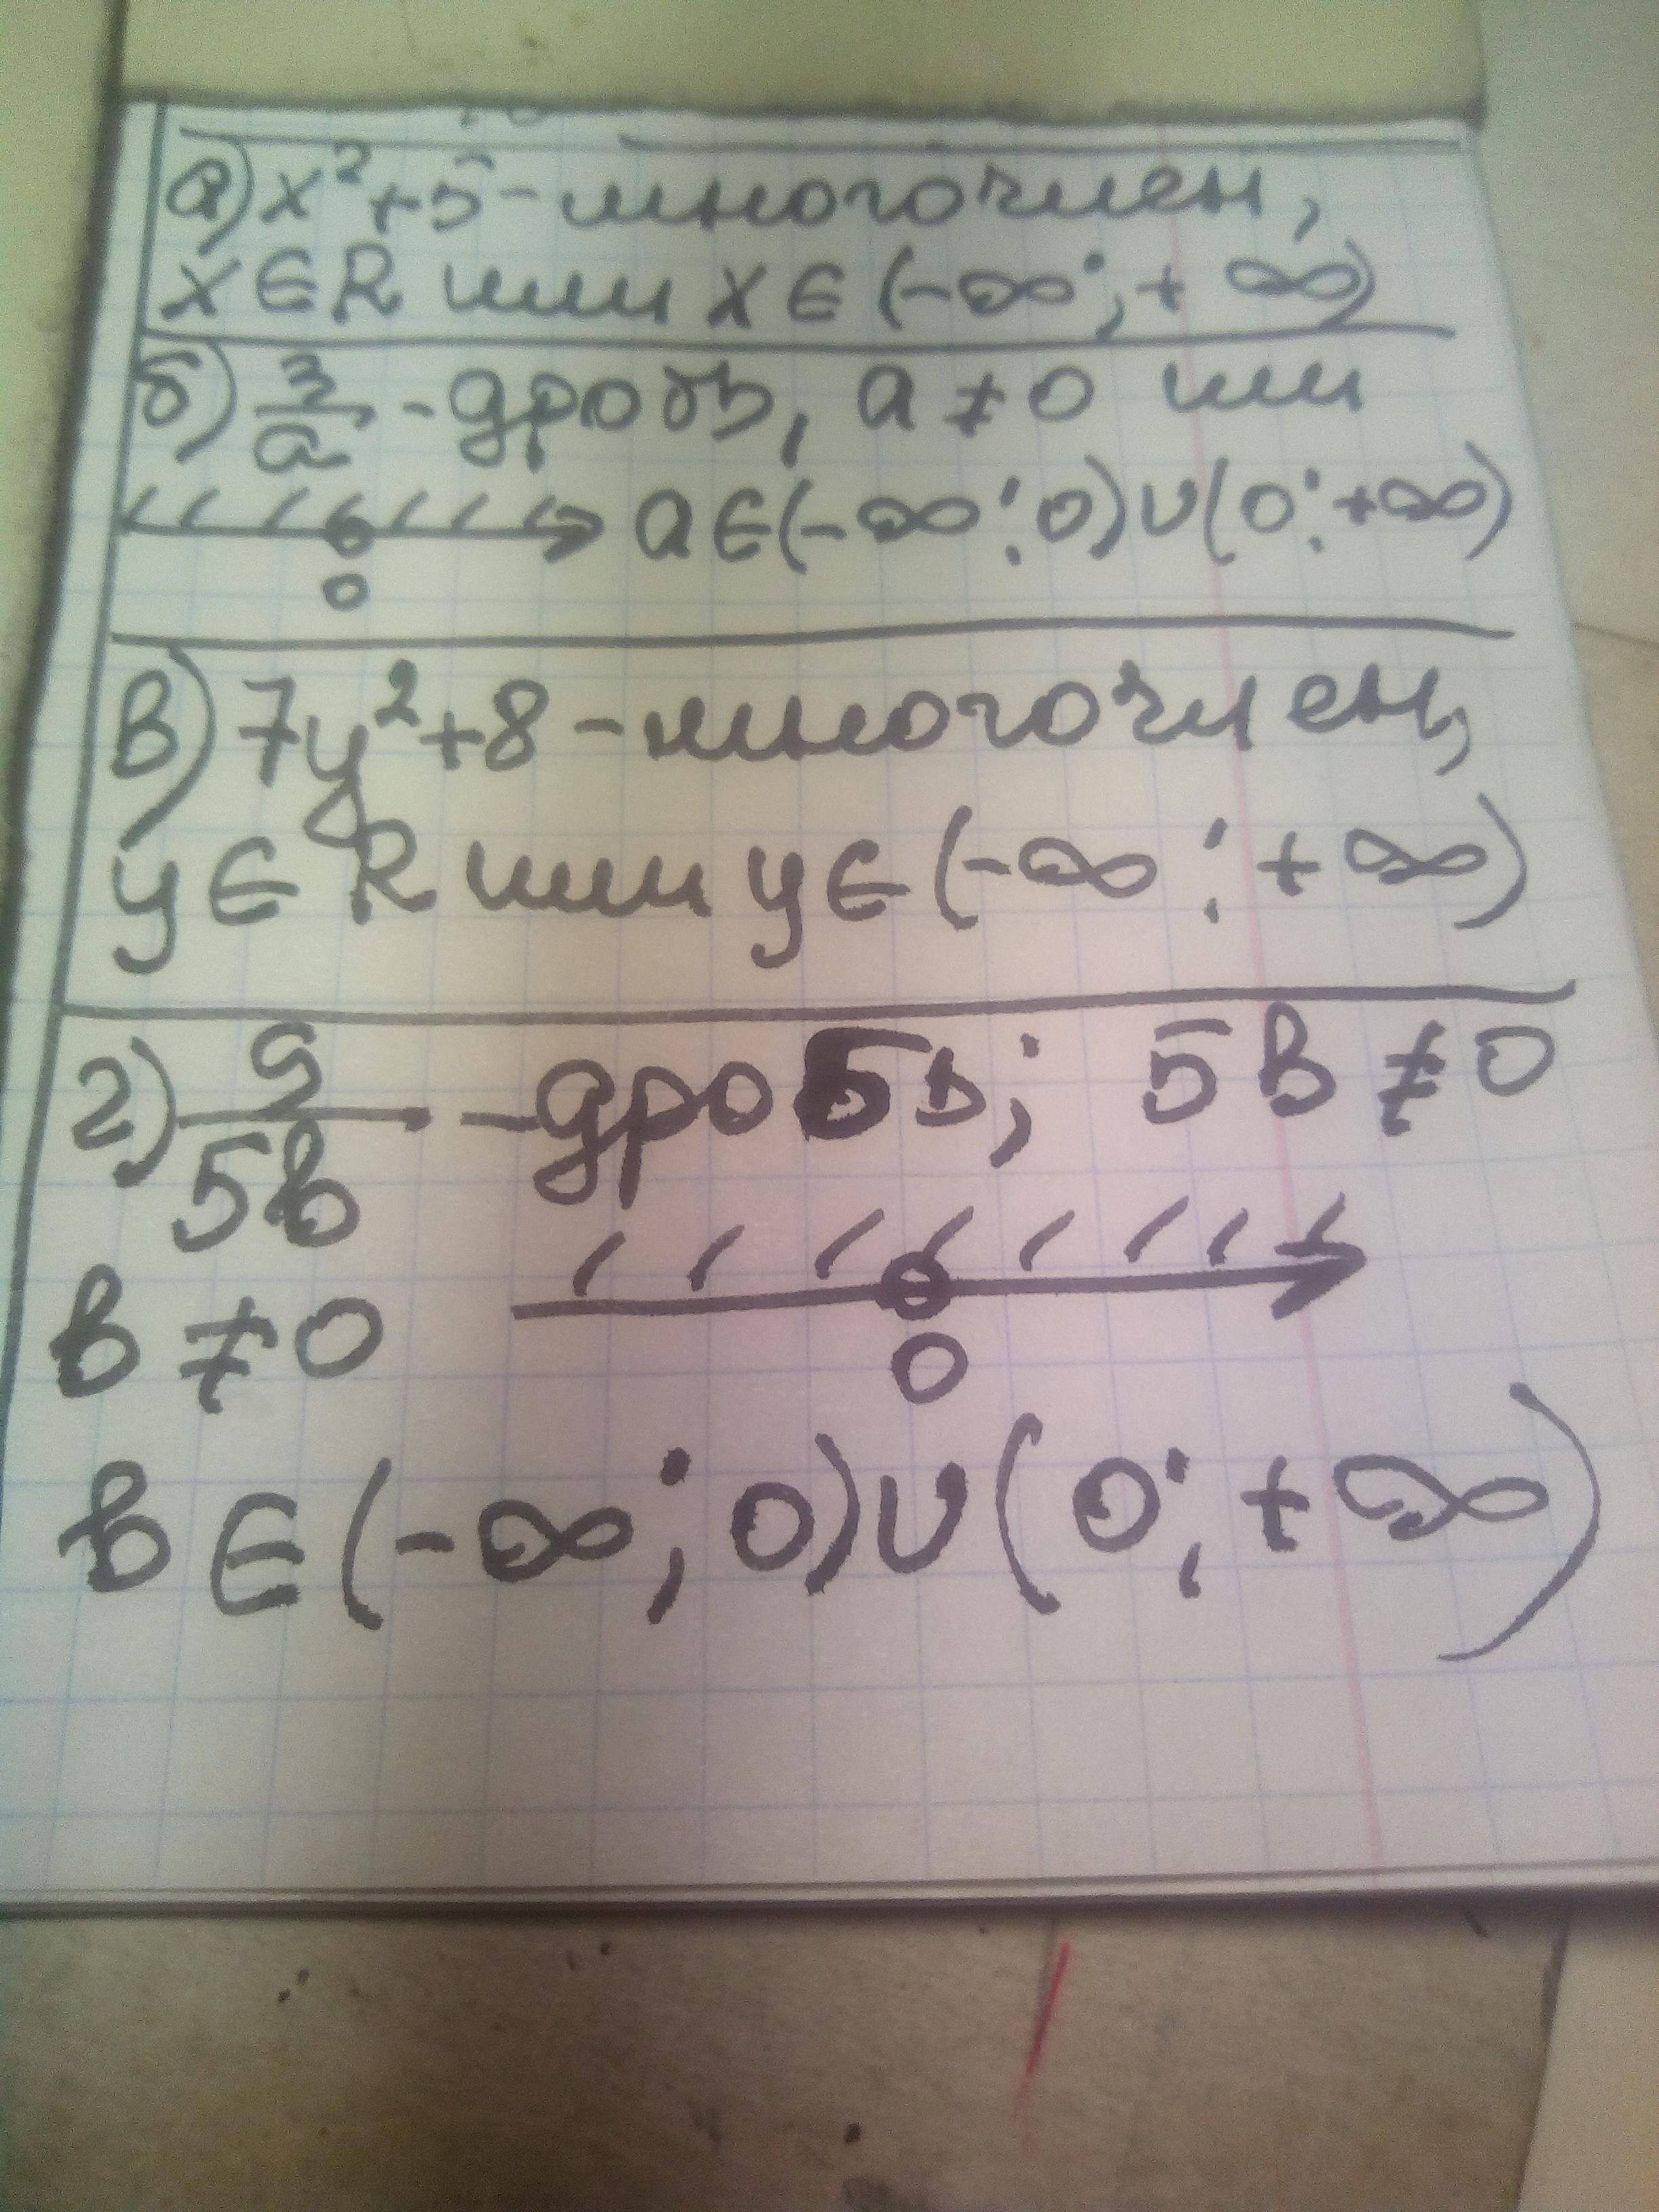 а) x² + 5 - многочлен,
x ∈ R или x ∈ (-∞; + ∞)
б) 3/a - дробь, a ≠ 0 или
a ∈ (-∞; 0) ∪ (0; +∞)
0
в) 7y² + 8 - многочлен,
y ∈ R или y ∈ (-∞; + ∞)
г) 9/5в - дробь; 5в ≠ 0
в ≠ 0
0
в ∈ (-∞; 0) ∪ (0; + ∞)